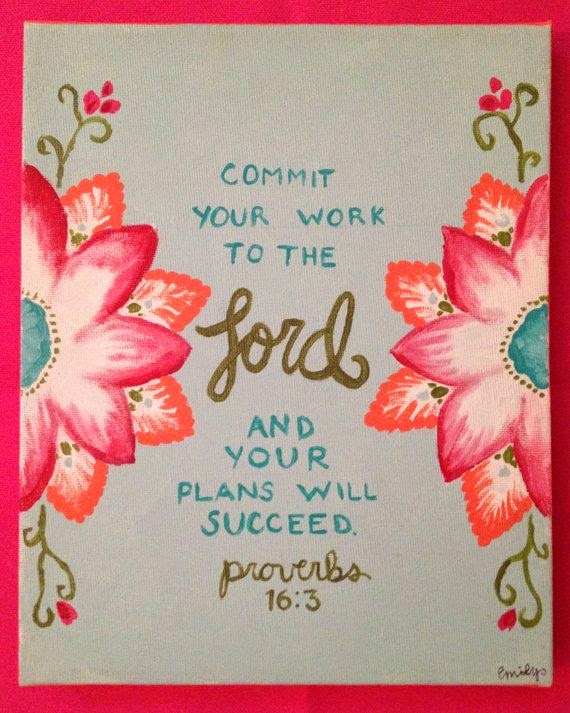 COMMIT
YOUR WORK
TO THE
Lord
AND
YOUR
PLANS WILL
SUCCEED.
proverbs
16:3
Emilys